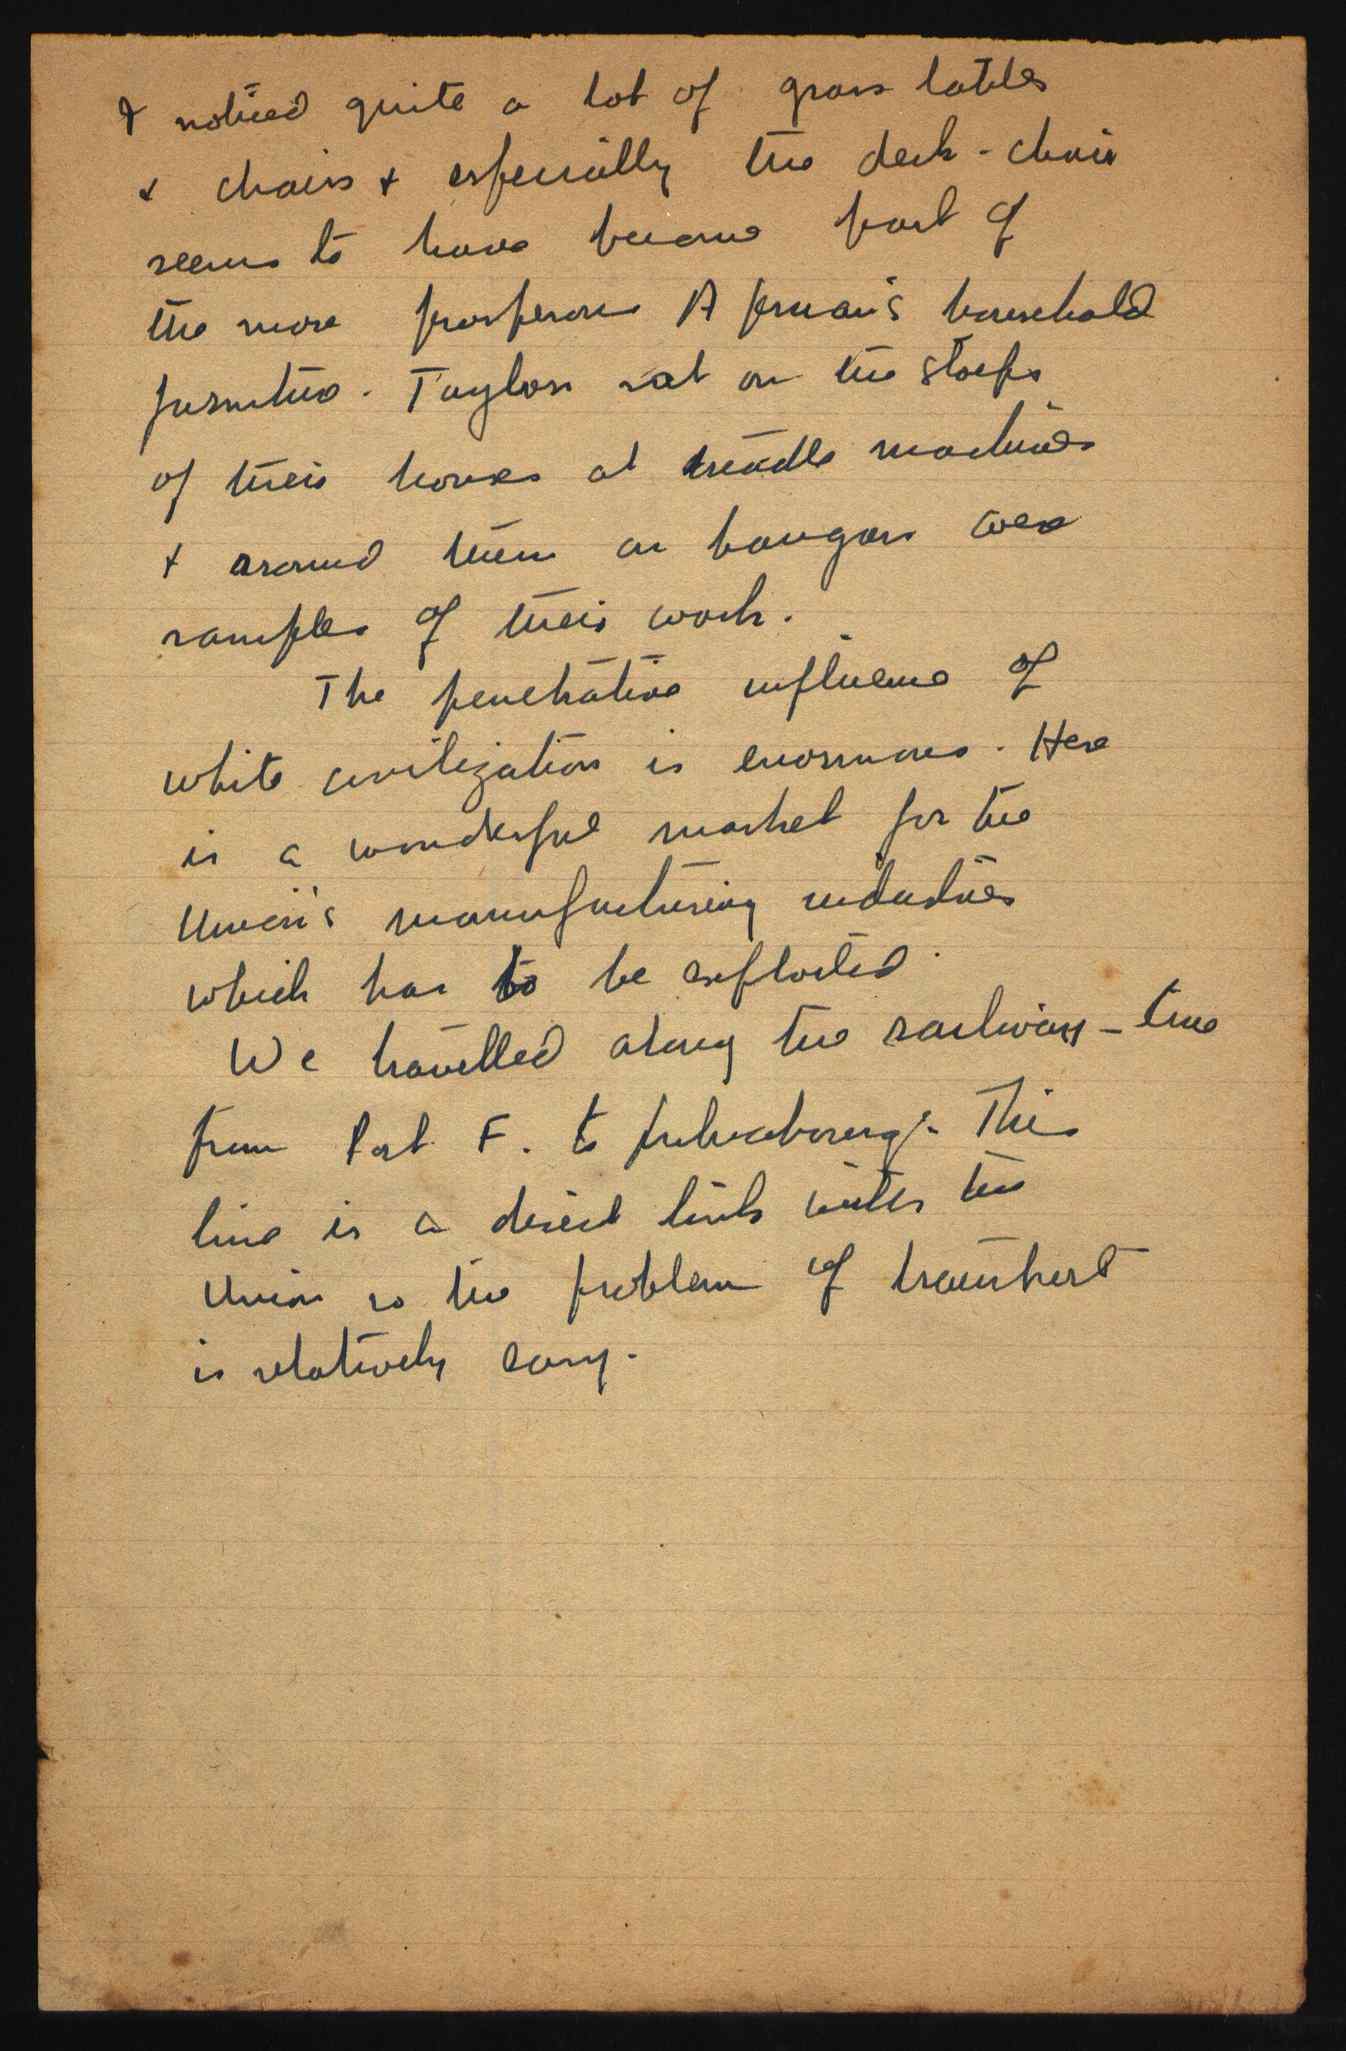 I noticed quite a lot of grass tables
& chairs & especially the deck-chair
seems to have become part of
the more prosperous household
furniture. Taylors sat on the stoeps
of their houses at treadle machines
& around them on hangars were
samples of their work.
The penetrative influence of
white civilization is enormous. Here
is a wonderful market for the
Union's manufacturing industries
which has to be exploited.
We travelled along the railway-line
from Port F. to This
line is a direct link with the
Union so the problem of
is relatively easy.